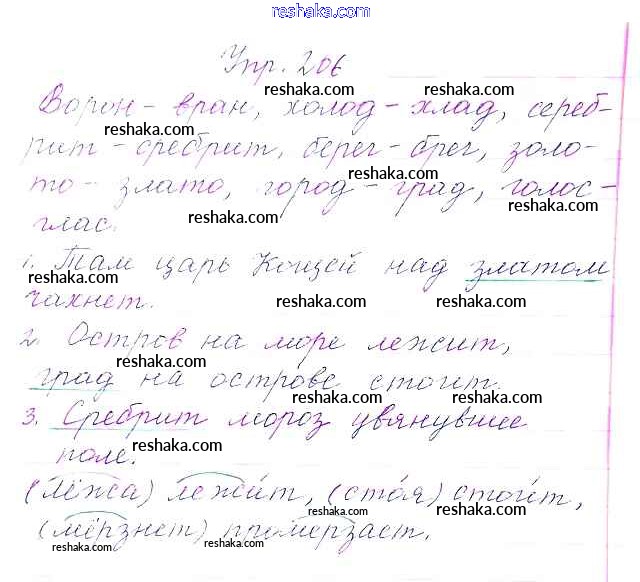 reshaka.com
Упр. 206
reshaka.com
Ворон - вран, холод - хлад, сереб-
reshaka.com
рит - сребрит, берег - брег, золо-
reshaka.com
то - злато, город - град, голос -
reshaka.com reshaka.com
глас.
1. Там царь Кощей над златом
reshaka.com
чахнет.
reshaka.com reshaka.com
2. Остров на море лежит,
reshaka.com
град на острове стоит.
reshaka.com
3. Сребрит мороз увянувшее
reshaka.com reshaka.com
поле.
(лёжа) лежит, (стоя) стоит,
reshaka.com reshaka.com
(мёрзнет) промерзает.
reshaka.com reshaka.com reshaka.com